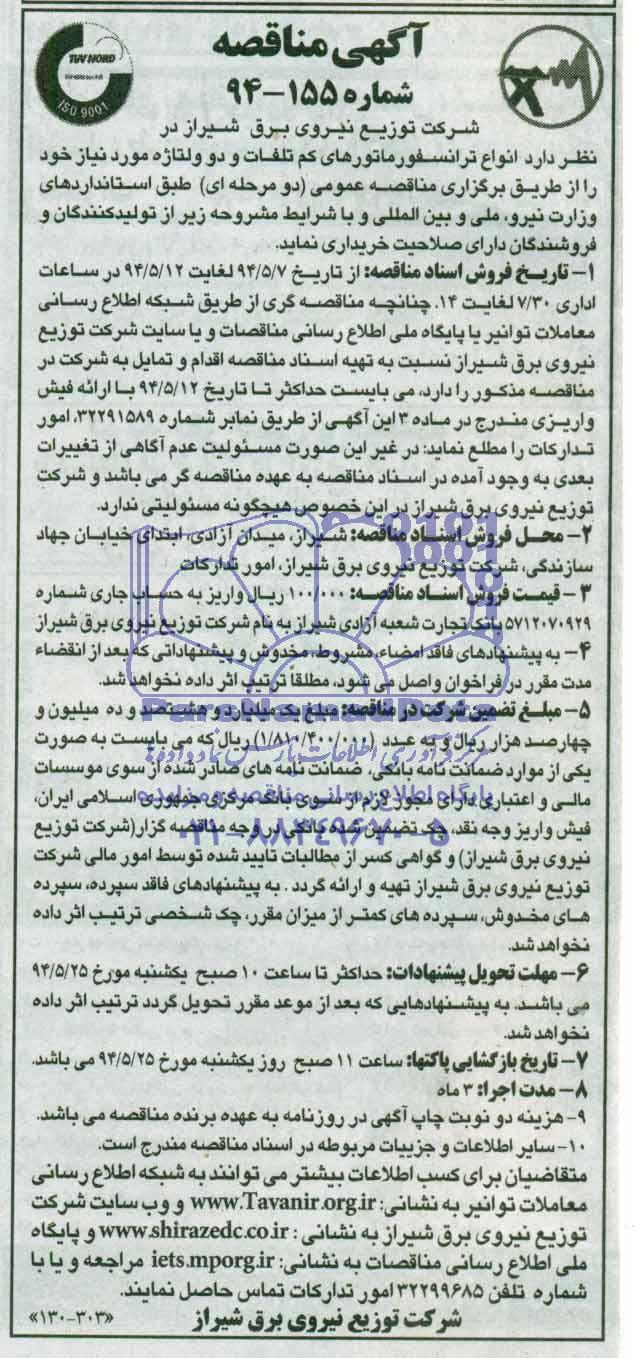 آگهی مناقصه
شماره ۱۵۵-۹۴
TUV NORD
ISO 9001
شرکت توزیع نیروی برق شیراز در
نظر دارد انواع ترانسفورماتورهای کم تلفات و دو ولتاژه مورد نیاز خود
را از طریق برگزاری مناقصه عمومی (دو مرحله ای) طبق استانداردهای
وزارت نیرو، ملی و بین المللی و با شرایط مشروحه زیر از تولیدکنندگان و
فروشندگان دارای صلاحیت خریداری نماید.
۱- تاریخ فروش اسناد مناقصه: از تاریخ ۹۴/۵/۷ لغایت ۹۴/۵/۱۲ در ساعات
اداری ۷/۳۰ لغایت ۱۴. چنانچه مناقصه گری از طریق شبکه اطلاع رسانی
معاملات توانیر یا پایگاه ملی اطلاع رسانی مناقصات و یا سایت شرکت توزیع
نیروی برق شیراز نسبت به تهیه اسناد مناقصه اقدام و تمایل به شرکت در
مناقصه مذکور را دارد، می بایست حداکثر تا تاریخ ۹۴/۵/۱۲ با ارائه فیش
واریزی مندرج در ماده ۳ این آگهی از طریق نمابر شماره ۳۲۲۹۱۵۸۹، امور
تدارکات را مطلع نماید: در غیر این صورت مسئولیت عدم آگاهی از تغییرات
بعدی به وجود آمده در اسناد مناقصه به عهده مناقصه گر می باشد و شرکت
توزیع نیروی برق شیراز در این خصوص هیچگونه مسئولیتی ندارد.
۲- محل فروش اسناد مناقصه: شیراز، میدان آزادی، ابتدای خیابان جهاد
سازندگی، شرکت توزیع نیروی برق شیراز، امور تدارکات
۳- قیمت فروش اسناد مناقصه: ۱۰۰/۰۰۰ ریال واریز به حساب جاری شماره
۵۷۱۲۰۷۰۹۲۹ بانک تجارت شعبه آزادی شیراز به نام شرکت توزیع نیروی برق شیراز
۴- به پیشنهادهای فاقد امضاء، مشروط، مخدوش و پیشنهاداتی که بعد از انقضاء
مدت مقرر در فراخوان واصل می شود، مطلقاً ترتیب اثر داده نخواهد شد.
۵- مبلغ تضمین شرکت در مناقصه: مبلغ یک میلیارد و هشتصد و ده میلیون و
چهارصد هزار ریال و به عدد (۱/۸۱۰/۴۰۰/۰۰۰) ریال که می بایست به صورت
یکی از موارد ضمانت نامه بانکی، ضمانت نامه های صادر شده از سوی موسسات
مالی و اعتباری دارای مجوز لازم از سوی بانک مرکزی جمهوری اسلامی ایران،
فیش واریز وجه نقد، چک تضمین شده بانکی در وجه مناقصه گزار (شرکت توزیع
نیروی برق شیراز) و گواهی کسر از مطالبات تایید شده توسط امور مالی شرکت
توزیع نیروی برق شیراز تهیه و ارائه گردد. به پیشنهادهای فاقد سپرده، سپرده
های مخدوش، سپرده های کمتر از میزان مقرر، چک شخصی ترتیب اثر داده
نخواهد شد.
۶- مهلت تحویل پیشنهادات: حداکثر تا ساعت ۱۰ صبح یکشنبه مورخ ۹۴/۵/۲۵
می باشد. به پیشنهادهایی که بعد از موعد مقرر تحویل گردد ترتیب اثر داده
نخواهد شد.
۷- تاریخ بازگشایی پاکتها: ساعت ۱۱ صبح روز یکشنبه مورخ ۹۴/۵/۲۵ می باشد.
۸- مدت اجرا: ۳ ماه
۹- هزینه دو نوبت چاپ آگهی در روزنامه به عهده برنده مناقصه می باشد.
۱۰- سایر اطلاعات و جزییات مربوطه در اسناد مناقصه مندرج است.
متقاضیان برای کسب اطلاعات بیشتر می توانند به شبکه اطلاع رسانی
معاملات توانیر به نشانی: www.Tavanir.org.ir و وب سایت شرکت
توزیع نیروی برق شیراز به نشانی: www.shirazedc.co.ir و پایگاه
ملی اطلاع رسانی مناقصات به نشانی: iets.mporg.ir مراجعه و یا با
شماره تلفن ۳۲۲۹۹۶۸۵ امور تدارکات تماس حاصل نمایند.
شرکت توزیع نیروی برق شیراز
«۱۳۰-۳۰۳»
پایگاه اطلاع رسانی مناقصه و مزایده
۰۲۱-۸۸۳۴۹۶۷۰-۵